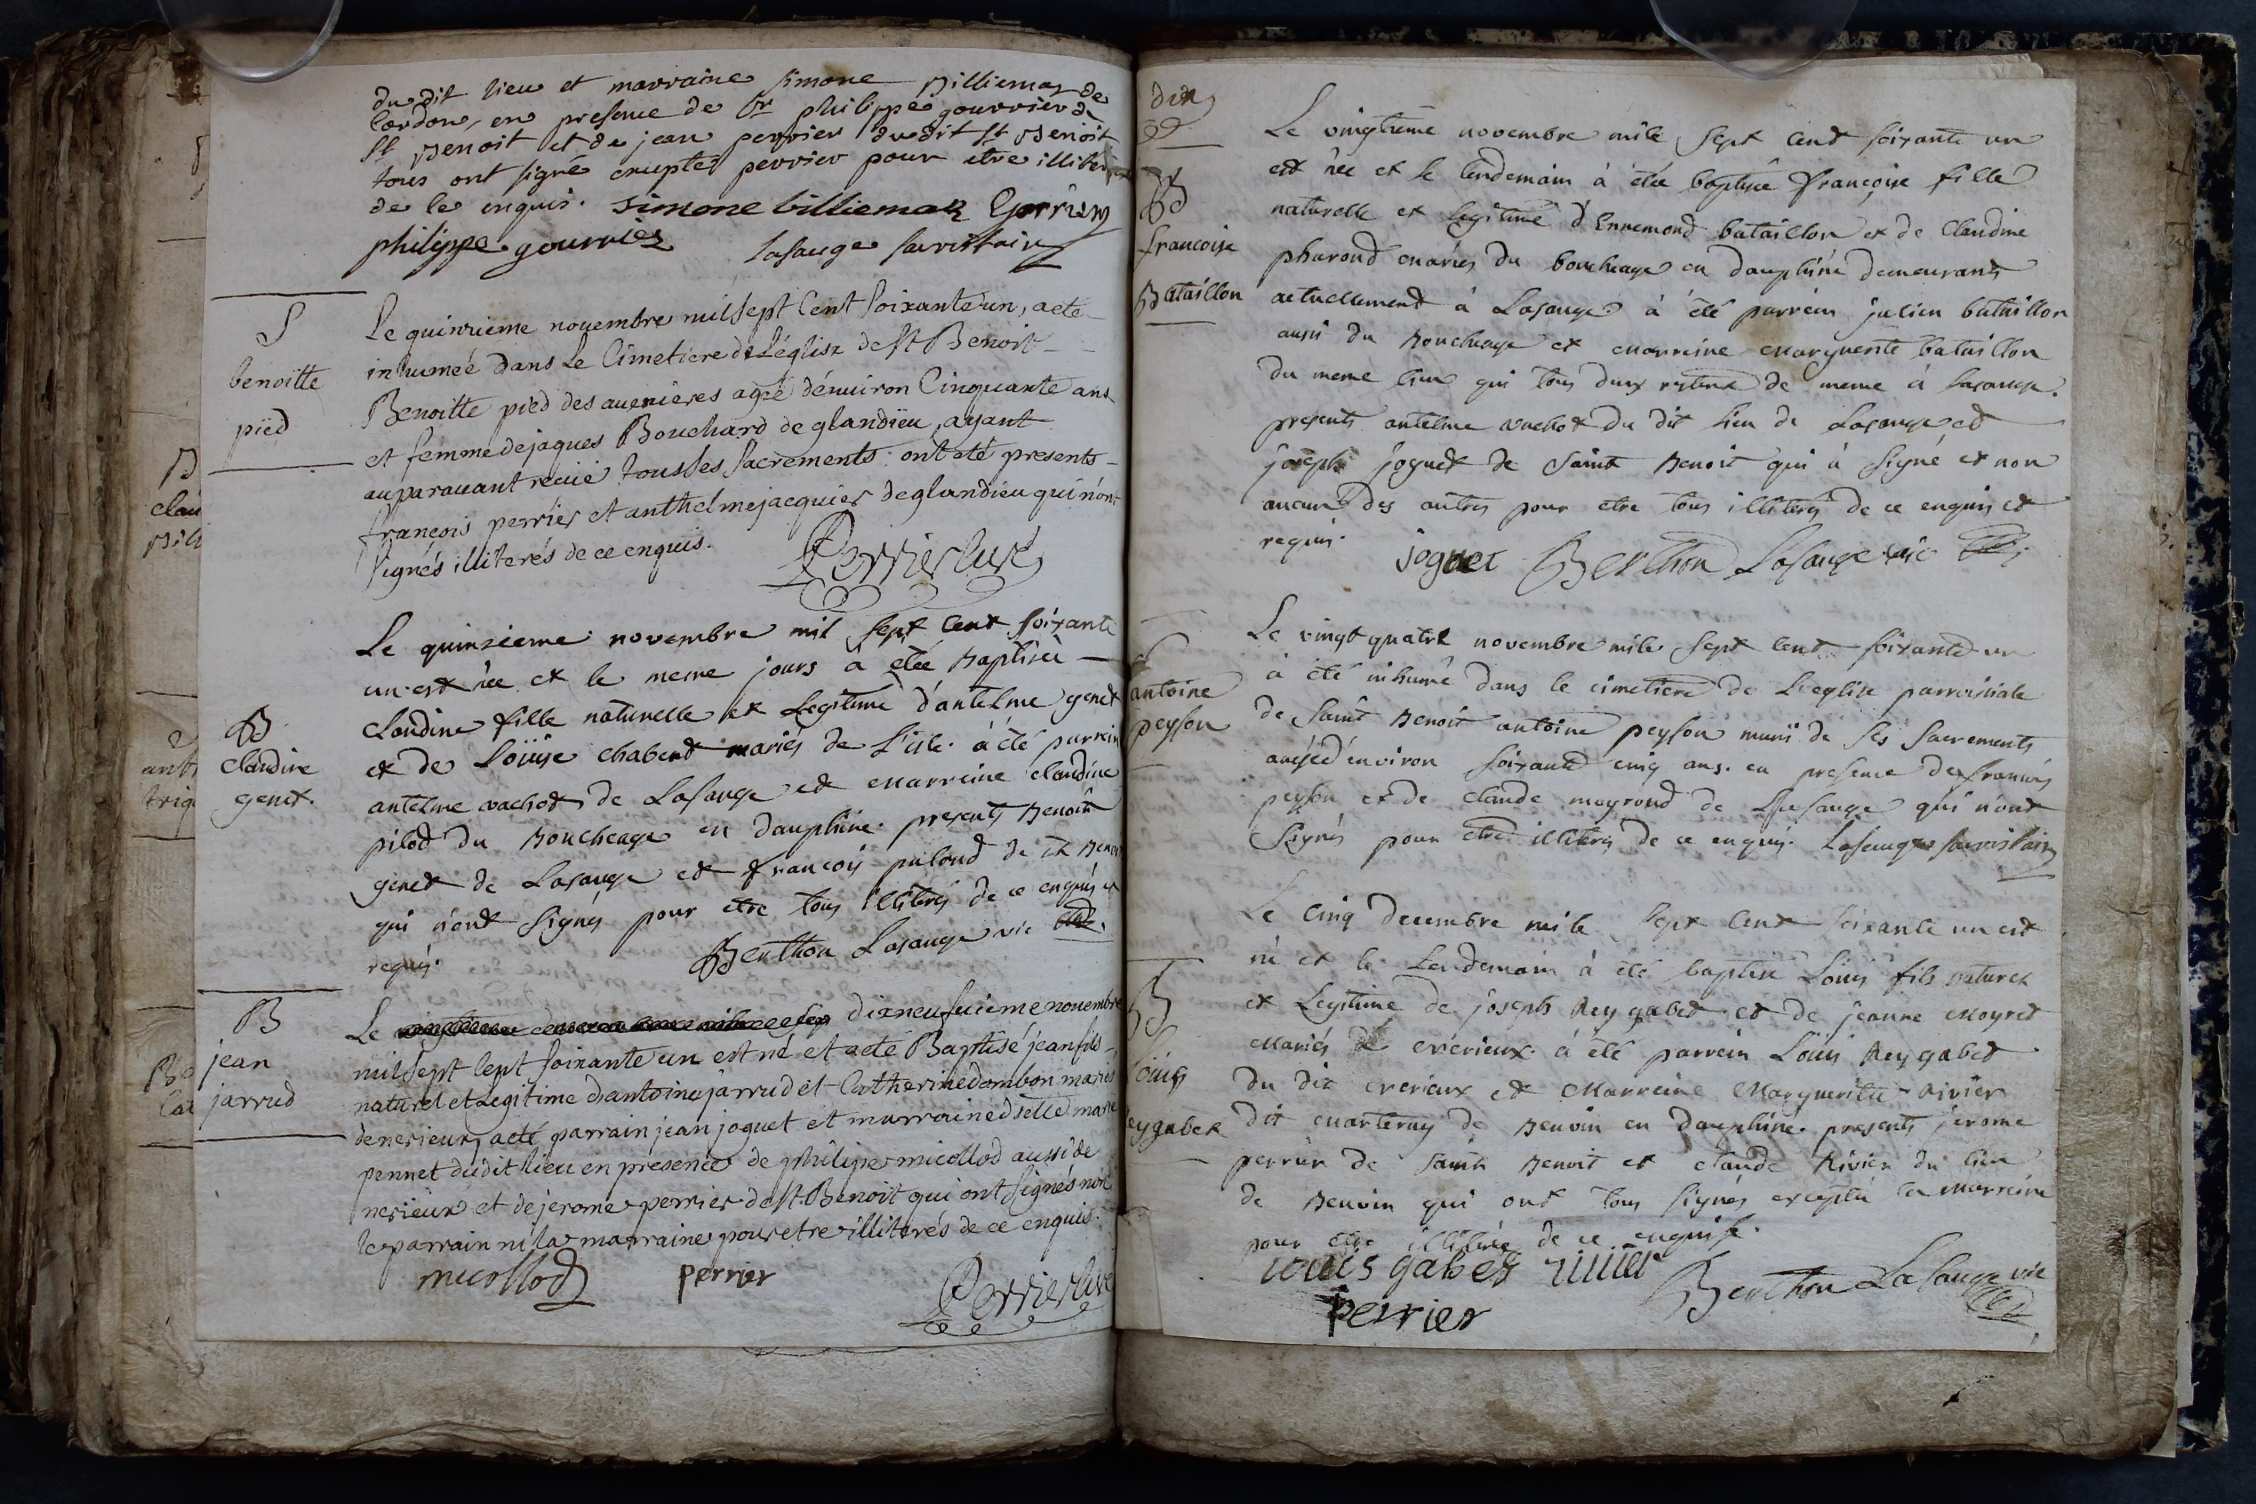 du dit lieu et marraine simone Billiemaz de
Cordon, en presence de Sr philippe gourrier de
St Benoit et de jean perrier du dit St Benoit
tous ont signé excupté perrier pour etre illiteré
de le enquis. simone billiemaz
philippe gourrier Lasauge sacristain
S
benoitte
pied
Le quinzieme novembre mil sept Cent Soixante un, a eté
inhumée dans Le Cimetiere de L'église de St Benoit
Benoitte pied des avenieres agée d'environ Cinquante ans
et femme de jaques Bouchard de glandieu, ayant
auparavant recue tous les Sacrements. ont eté presents
francois perrier et anthelme jacquier de glandieu qui n'ont
signés illiterés de ce enquis. Perrier Curé
B
Claudine
genet.
Le quinzieme novembre mil sept cent soixante
un est née et le meme jours à etée Baptisée
Claudine fille naturelle et Legitime d'antelme genet
et de Loüise Chabert mariés de L'isle. à été parrein
antelme vachot de Lasauge et marreine Claudine
pilod du Boucheage en dauphine. presents Benoit
genet de Lasauge et francois de St Benoit
qui n'ont signés pour etre tous illiterés de ce enquis et
requis. Berthon Lasauge vic
B
jean
jarrud
Le dixneufvieme novembre
mil sept cept soixante un est né et a eté Baptisé jean fils
naturel et Legitime d'antoine jarrud et Catherine dombon mariés
de nerieux, a eté parrain jean joguet et marraine dselle marie
pennet dudit lieu en présence de philipe micollod aussi de
nerieux et de jerome perrier de St Benoit qui ont signés non
le parrain ni la marraine pour etre illiterés de ce enquis.
micollod perrier Perrier Curé
dix
B
francoise
Bataillon
Le vingtieme novembre mile sept cent soixante un
est née et le lendemain à etée baptisée françoise fille
naturelle et legitime d'Ennemond bataillon et de Claudine
pharond mariés du boucheage en dauphiné demeurants
actuellement à Lasauge. à été parrein julien bataillon
aussi du Boucheage et marreine marguerite bataillon
du meme lieu qui tous deux restent de meme à Lasauge.
presents antelme vachot du dit lieu de Lasauge et
joseph joguet de Saint Benoit qui à signé et non
aucun des autres pour etre tous illiterés de ce enquis et
requis. joguet Berthon Lasauge vic
antoine
peyson
Le vingt quatre novembre mile sept cent soixante un
à été inhumé dans le cimetiere de L'eglise parroissiale
de Saint Benoit antoine peyson muni de ses Sacrements
d'environ soixante cinq ans. en presence de francois
peyson et de claude moyroud de Lasauge qui n'ont
Signés pour etre illiterés de ce enquis. Lasauge sacristain
B
Loüis
Reygabet
Le cinq decembre mile sept cent soixante un est
né et le Lendemain à été baptisé Loüis fils naturel
et Legitime de joseph Reygabet et de jeanne Moyret
mariés de à été parrein Loüis Reygabet
du dit et Marreine Marguerite Rivier
dit de Beuvin en Dauphine. presents jerome
perrier de Saint Benoit et Claude Rivier du lieu
de Beuvin qui ont tous signés excepté la marreine
pour etre illiterée de ce enquise.
Louis gabet rivier Berthon Lasauge vic
perrier